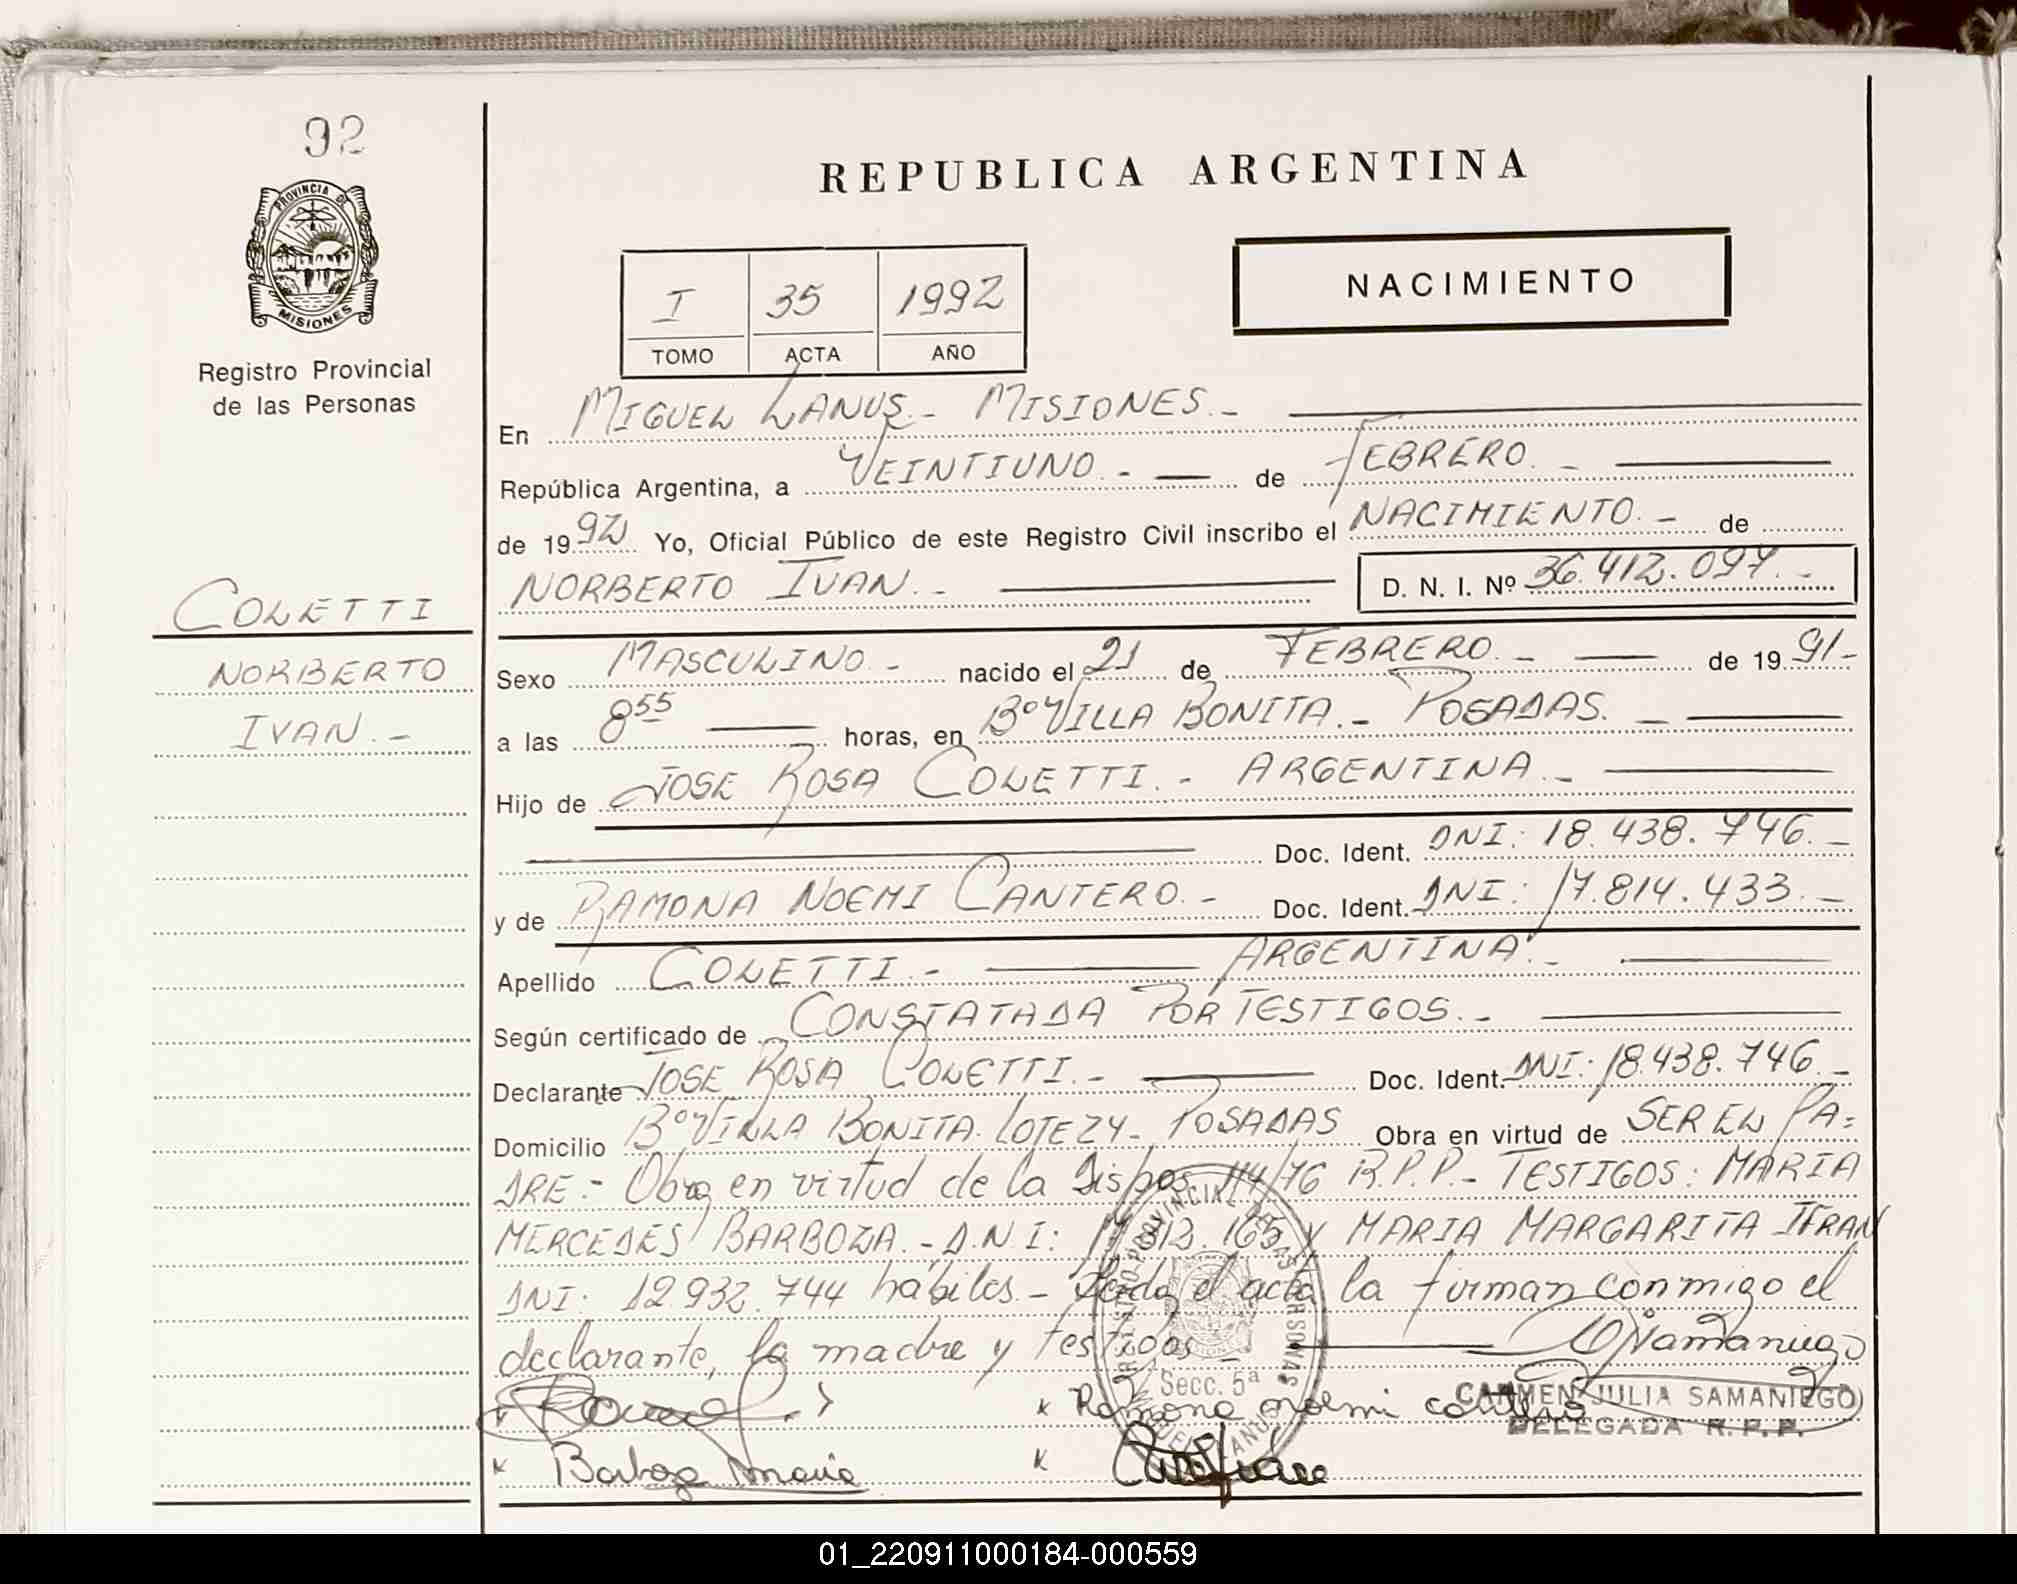 92
PROVINCIA DE
MISIONES
Registro Provincial
de las Personas
COLETTI
NORBERTO
IVAN.-
REPUBLICA ARGENTINA
I 35 1992
TOMO ACTA AÑO
NACIMIENTO
En MIGUEL LANUS.- MISIONES.-
República Argentina, a VEINTIUNO.- de FEBRERO.-
de 1992 Yo, Oficial Público de este Registro Civil inscribo el NACIMIENTO.- de
NORBERTO IVAN.- D. N. I. Nº 36.412.097.-
Sexo MASCULINO.- nacido el 21 de FEBRERO.- de 1991-
a las 8 55 horas, en Bº VILLA BONITA.- POSADAS.-
Hijo de JOSE ROSA COLETTI.- ARGENTINA.-
Doc. Ident. DNI: 18.438.746.-
y de RAMONA NOEMI CANTERO.- Doc. Ident. DNI: 17.814.433.-
Apellido COLETTI.- ARGENTINA.-
Según certificado de CONSTATADA POR TESTIGOS.-
Declarante JOSE ROSA COLETTI.- Doc. Ident. DNI: 18.438.746.-
Domicilio Bº VILLA BONITA. LOTE 24- POSADAS Obra en virtud de SER EL PA=
DRE.- Obra en virtud de la Dispos 114/76 R.P.P.- TESTIGOS: MARIA
MERCEDES BARBOZA.- D.N.I: Y MARIA MARGARITA IFRAN
DNI: 12.932.744 hábiles.- Leída el acta la firman conmigo el
declarante, la madre y testigos.-
Secc. 5ª
x Ramona noemi cantero
CARMEN JULIA SAMANIEGO
DELEGADA R.P.P.
x Barboza maria x
01_220911000184-000559